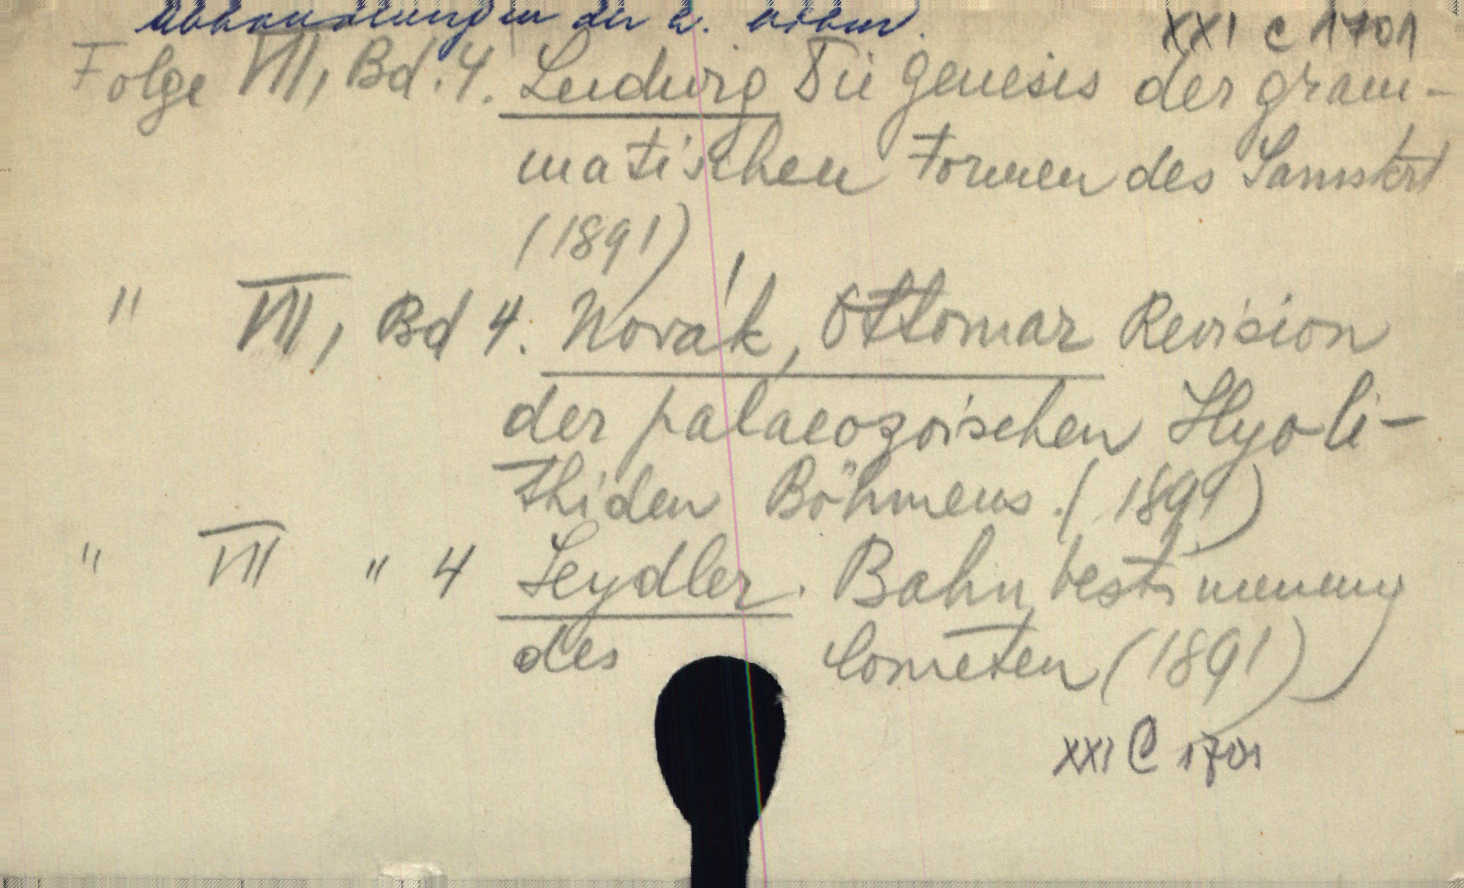 Abhandlungen der k. böhm. XXI C 1701
Folge VII, Bd. 4. Ludwig Die Genesis der gram-
matischen Formen des Samskrt
(1891)
" VII, Bd 4. Novák, Ottomar Revision
der palaeozoischen Hyoli-
thiden Böhmens. (1891)
" VII " 4 Seydler. Bahnbestimmung
des Cometen (1891)
XXI C 1701